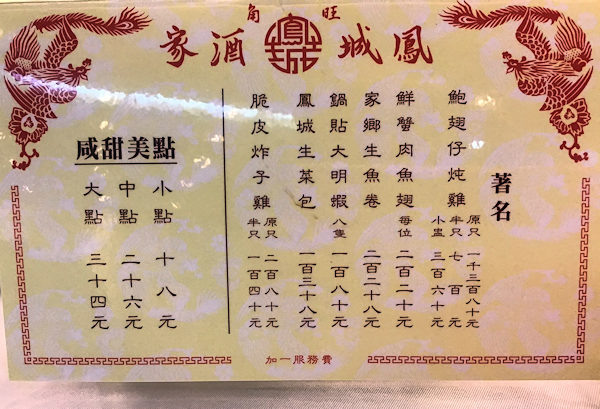 旺角
鳳城酒家
著名
鮑翅仔炖雞 原只 一千三百八十元
半只 七百元
小盅 三百六十元
鮮蟹肉魚翅 每位 二百二十元
家鄉生魚卷 二百二十八元
鍋貼大明蝦 八隻 一百八十元
鳳城生菜包 一百三十八元
脆皮炸子雞 原只 二百八十元
半只 一百四十元
咸甜美點
小點 十八元
中點 二十六元
大點 三十四元
加一服務費